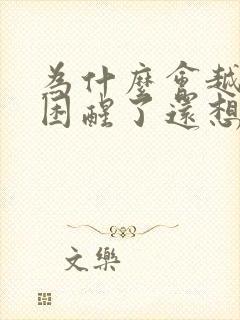 為什麼會越
困醒了還想
文樂